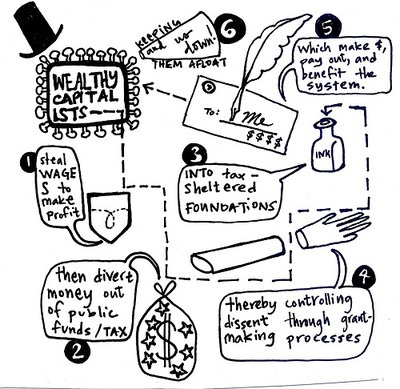 WEALTHY
CAPITAL
ISTS—
1
steal
WAGE
S to
make
profit
2
then divert
money out
of public
funds/TAX
$
3
INTO tax-
sheltered
FOUNDATIONS
INK
4
thereby controlling
dissent through grant-
making processes
5
Which make $,
pay out, and
benefit the
system.
To: Me
$$$$
6
KEEPING
and us
down!
THEM AFLOAT